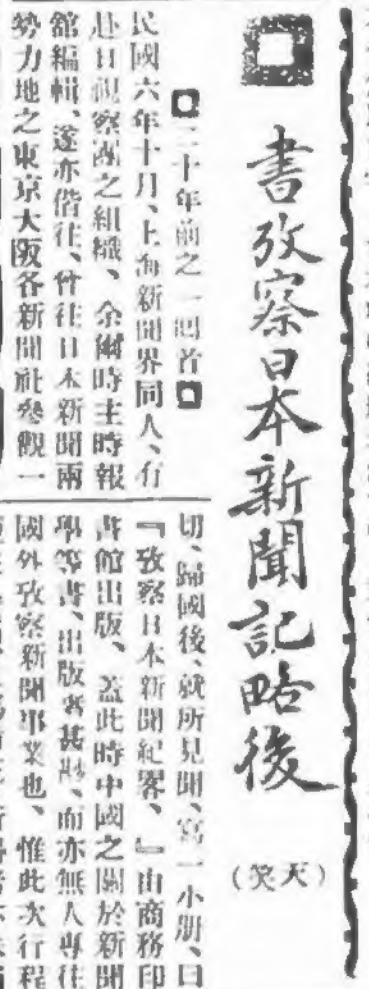 書攷察日本新聞記略後
(天笑)
二十年前之一回首
民國六年十月、上海新聞界同人、有
赴日視察團之組織、余爾時主時報
館編輯、遂亦偕往、曾往日本新聞兩
勢力地之東京大阪各新聞社參觀一
切、歸國後、就所見聞、寫一小册、曰
『攷察日本新聞紀畧、』由商務印
書館出版、蓋此時中國之關於新聞
學等書、出版者甚尠、而亦無人專往
國外攷察新聞事業也、惟此次行程